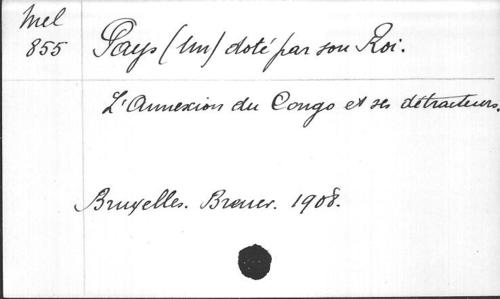 Mel
855
Pays (Un) doté par son Roi.
L'Annexion du Congo et ses détracteurs.
Bruxelles. Brener. 1908.